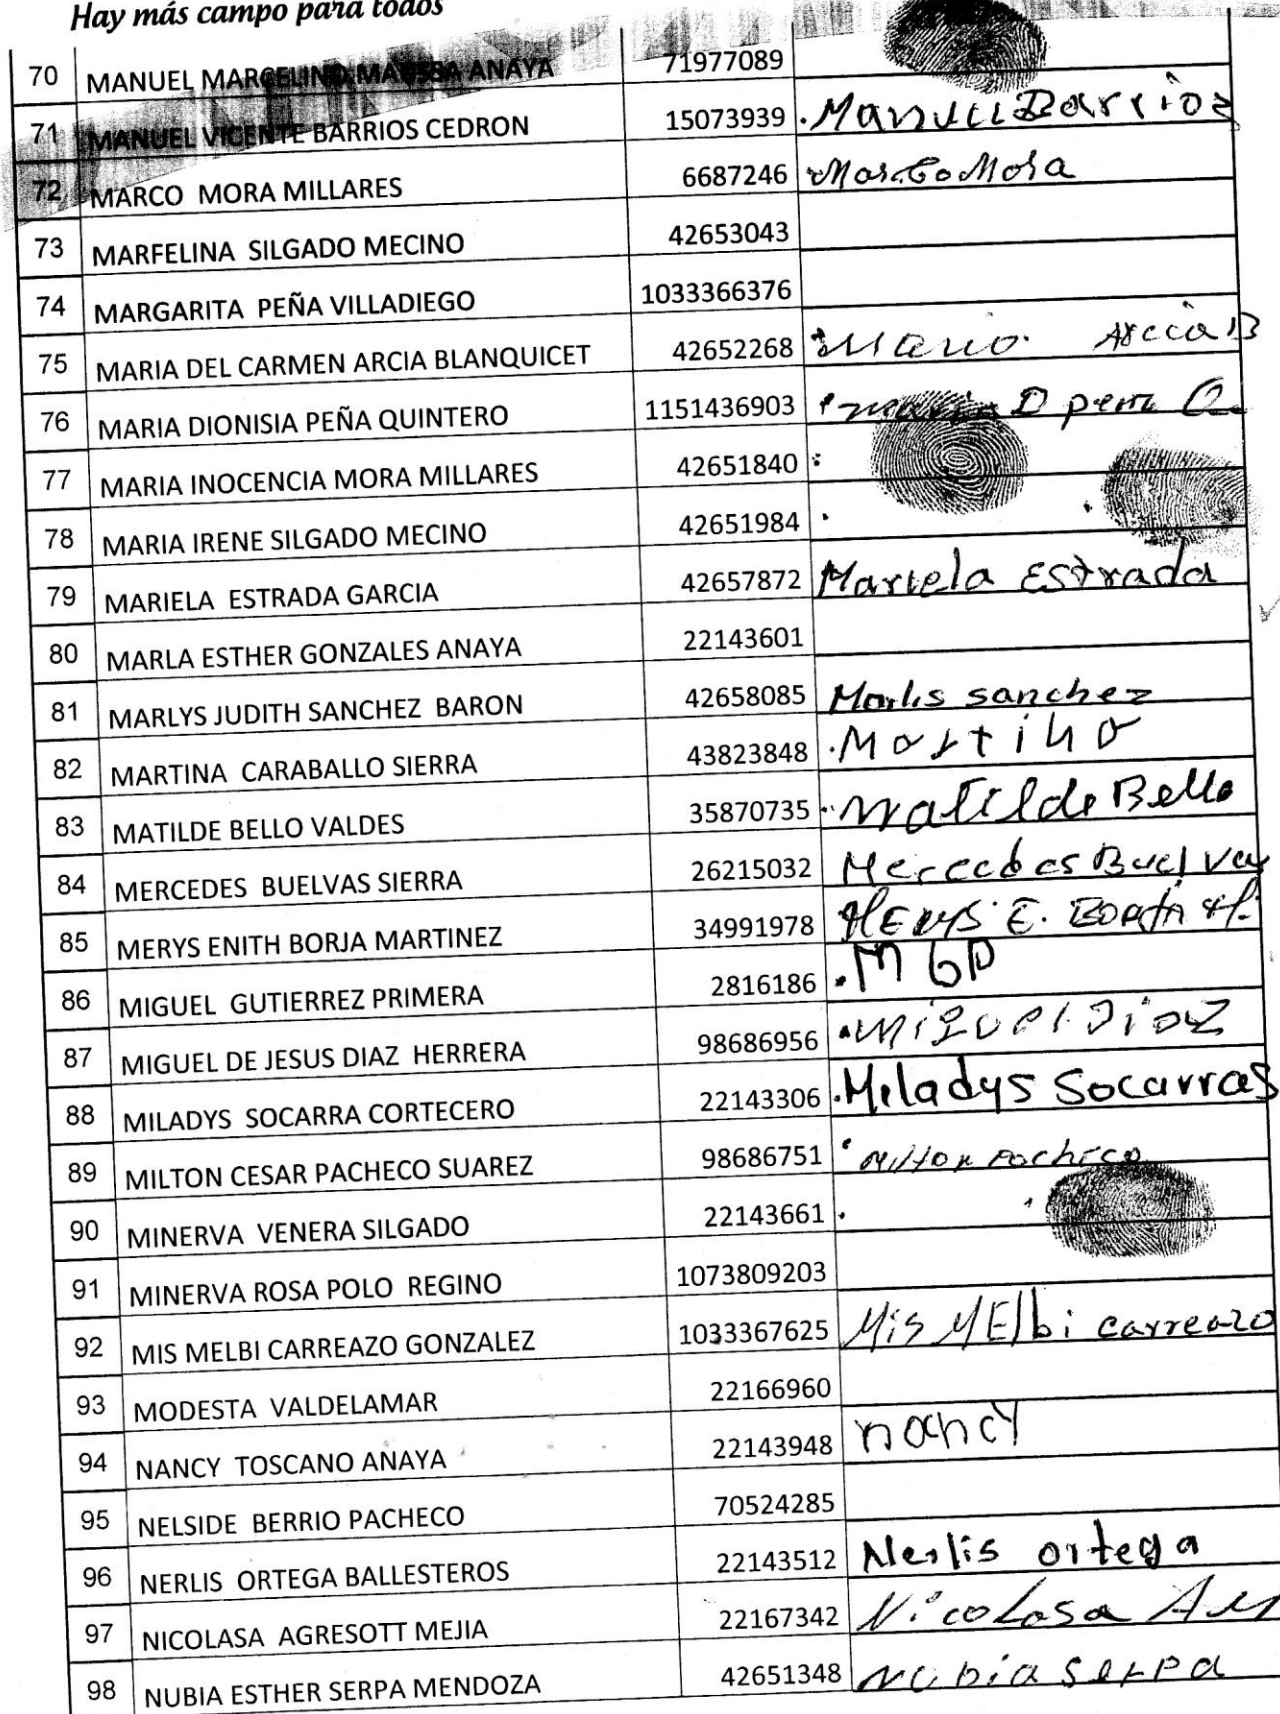 Hay más campo para todos
70 MANUEL MARCELINO MAUSSA ANAYA 71977089
71 MANUEL VICENTE BARRIOS CEDRON 15073939 Manuel Barrios
72 MARCO MORA MILLARES 6687246 Marco Mora
73 MARFELINA SILGADO MECINO 42653043
74 MARGARITA PEÑA VILLADIEGO 1033366376
75 MARIA DEL CARMEN ARCIA BLANQUICET 42652268 Maria Arcia B
76 MARIA DIONISIA PEÑA QUINTERO 1151436903 maria D peña Q.
77 MARIA INOCENCIA MORA MILLARES 42651840
78 MARIA IRENE SILGADO MECINO 42651984
79 MARIELA ESTRADA GARCIA 42657872 Mariela Estrada
80 MARLA ESTHER GONZALES ANAYA 22143601
81 MARLYS JUDITH SANCHEZ BARON 42658085 Marlis sanchez
82 MARTINA CARABALLO SIERRA 43823848 Martina
83 MATILDE BELLO VALDES 35870735 Matilde Bello
84 MERCEDES BUELVAS SIERRA 26215032 Mercedes Buelvas
85 MERYS ENITH BORJA MARTINEZ 34991978 MERYS E. BORJA M.
86 MIGUEL GUTIERREZ PRIMERA 2816186 M G P
87 MIGUEL DE JESUS DIAZ HERRERA 98686956 Miguel Diaz
88 MILADYS SOCARRA CORTECERO 22143306 Miladys Socarras
89 MILTON CESAR PACHECO SUAREZ 98686751 Milton Pacheco
90 MINERVA VENERA SILGADO 22143661
91 MINERVA ROSA POLO REGINO 1073809203
92 MIS MELBI CARREAZO GONZALEZ 1033367625 Mis MElbi carreazo
93 MODESTA VALDELAMAR 22166960
94 NANCY TOSCANO ANAYA 22143948 nancy
95 NELSIDE BERRIO PACHECO 70524285
96 NERLIS ORTEGA BALLESTEROS 22143512 Nerlis ortega
97 NICOLASA AGRESOTT MEJIA 22167342 Nicolasa
98 NUBIA ESTHER SERPA MENDOZA 42651348 Nubia Serpa